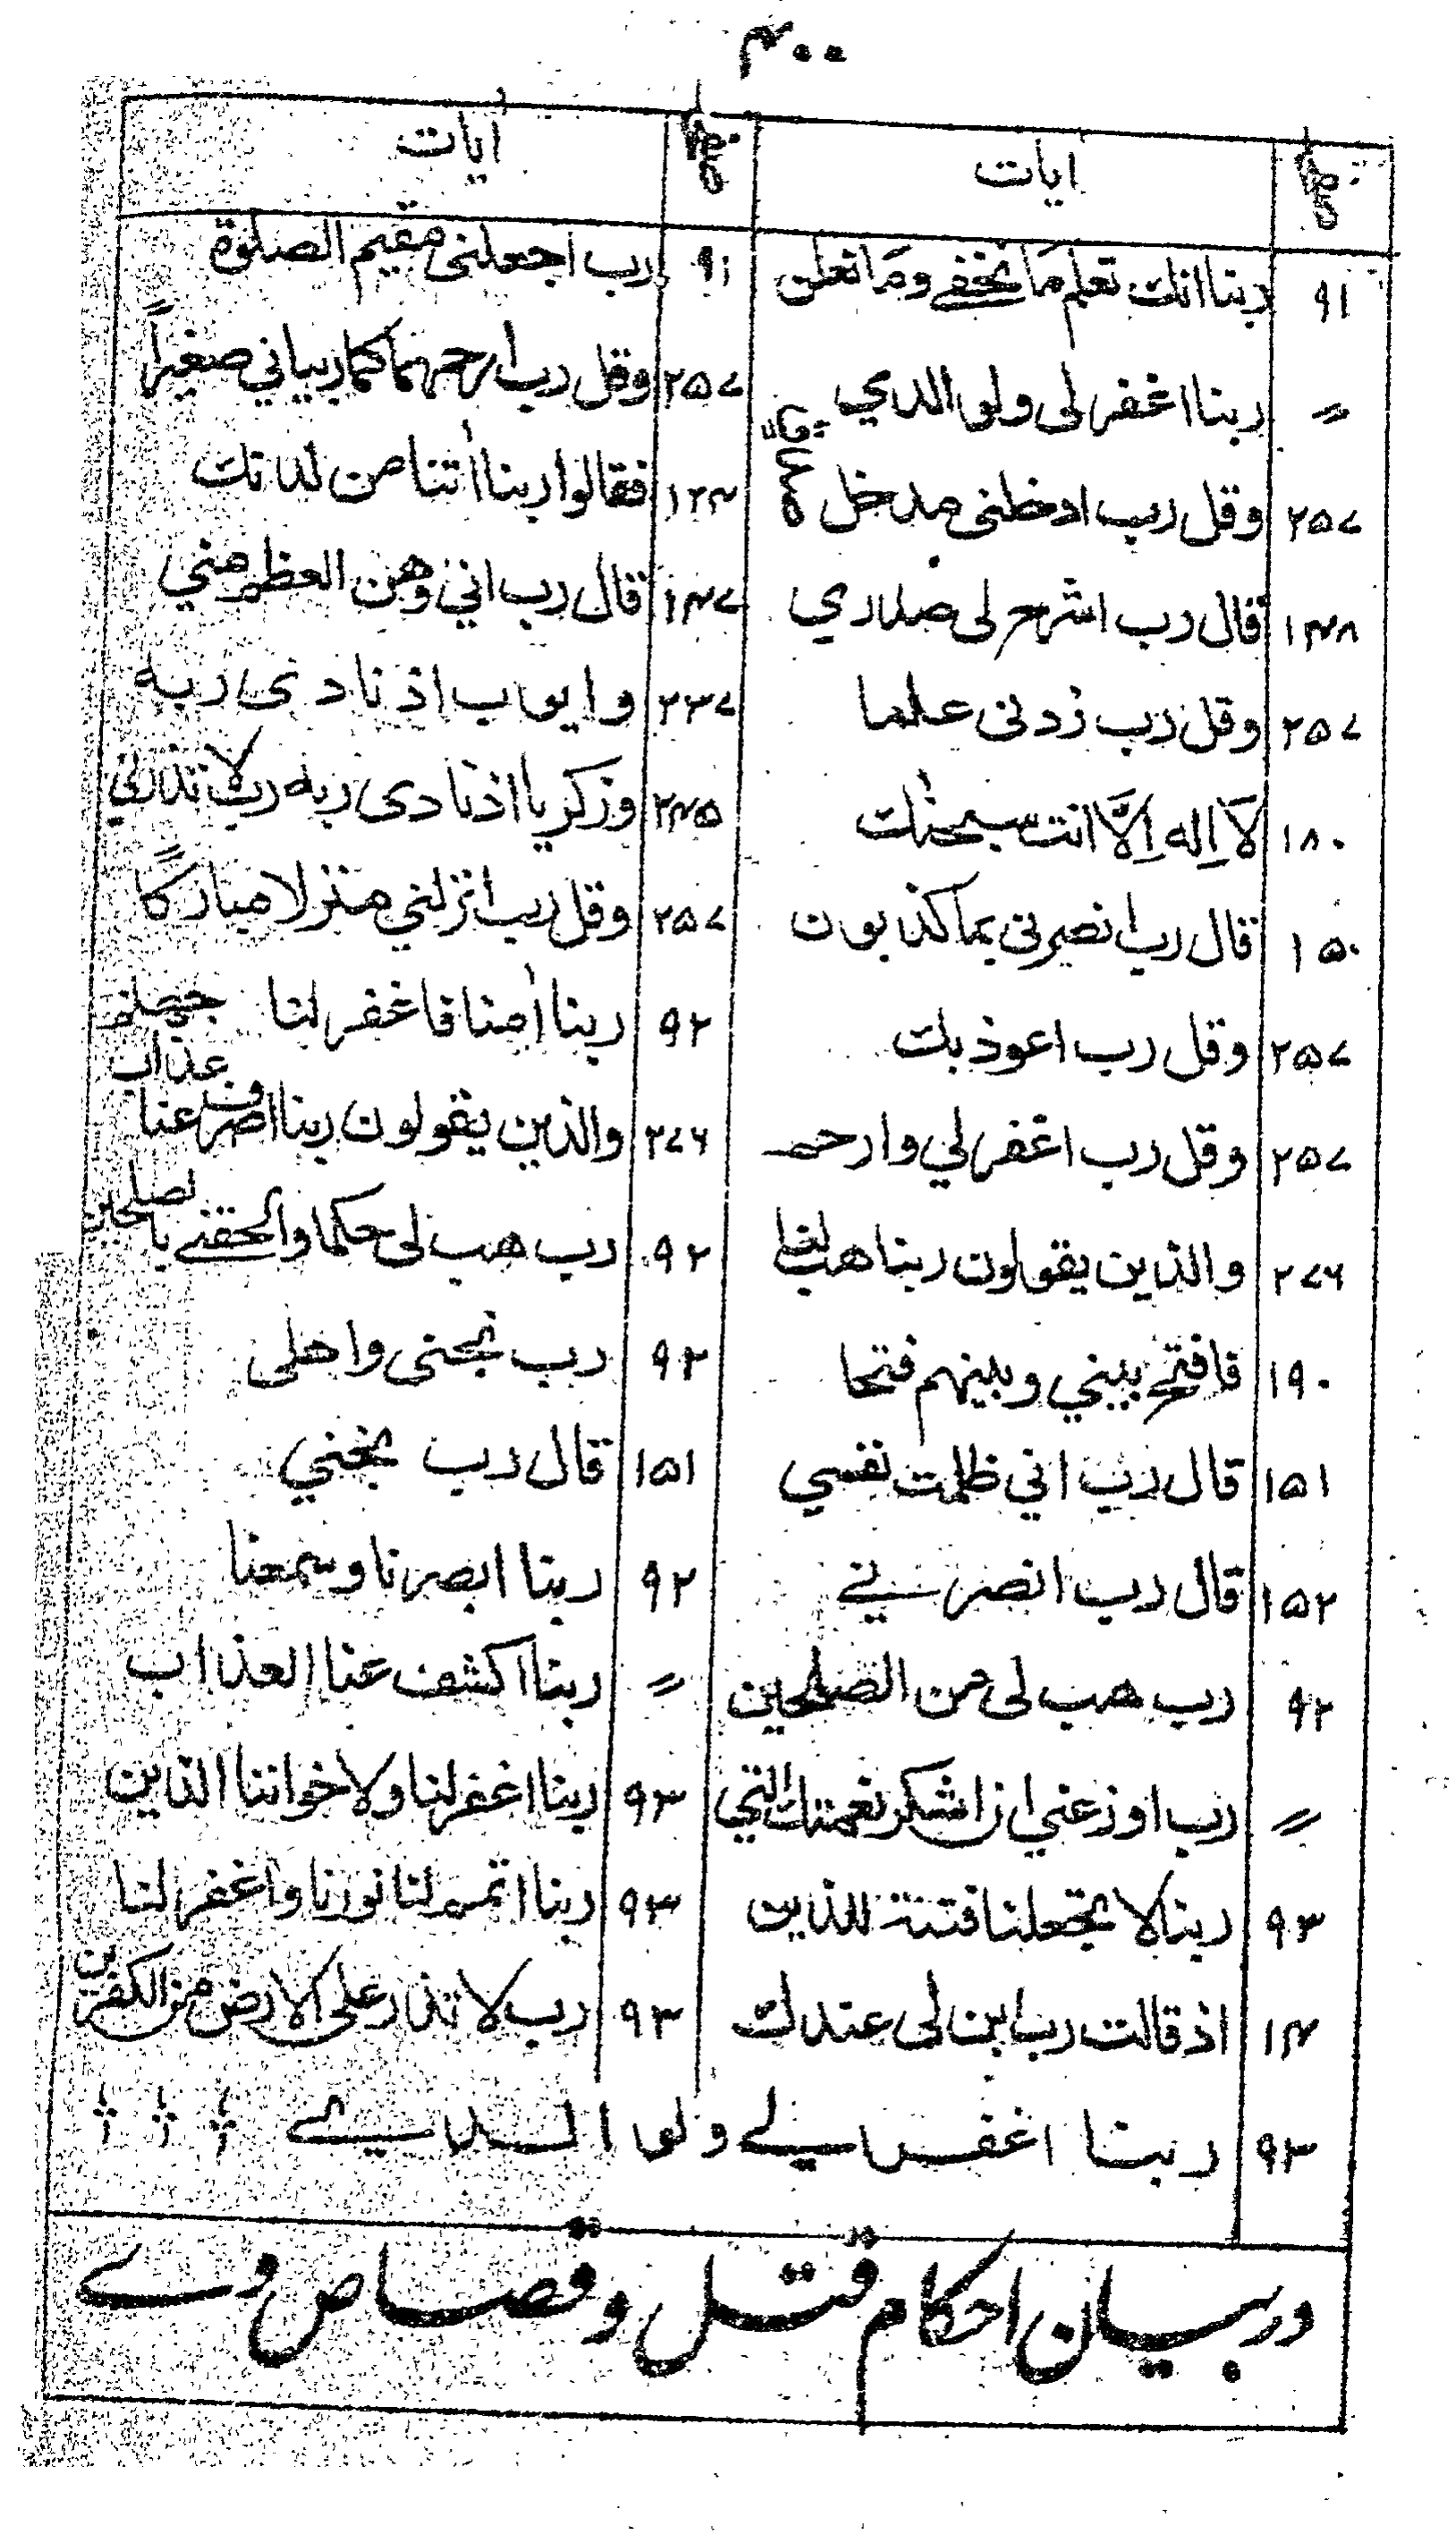 ۴۰۰
صفحہ ایات صفحہ ایات
۹۱ ربنا انك تعلم ما نخفے وما نعلن ۹۱ رب اجعلنى مقيم الصلوة
〃 ربنا اغفر لى ولوالدي ۲۵۷ وقل رب ارحمهما كما ربياني صغيراً
۲۵۷ وقل رب ادخلنى مدخل ۱۲۴ فقالوا ربنا اٰتنا من لدنك
۱۴۸ قال رب اشرح لى صدري ۱۴۷ قال رب اني وهن العظم مني
۲۵۷ وقل رب زدنى علما ۲۳۷ وايوب اذ نادى ربه
۱۸۰ لَا اِله اِلَّا انت سبحٰنك ۲۴۵ وزكريا اذ نادى ربه رب لا تذرني
۱۵۰ قال رب انصرنى بما كذبون ۲۵۷ وقل رب انزلني منزلا مباركًا
۲۵۷ وقل رب اعوذ بك ۹۲ ربنا اٰمنا فاغفر لنا
۲۵۷ وقل رب اغفر لي وارحم ۲۷۶ والذين يقولون ربنا اصرف عنا عذاب جهنم
۲۷۶ والذين يقولون ربنا هب لنا ۹۲ رب هب لى حكما والحقنے بالصلحين
۱۹۰ فافتح بيني وبينهم فتحا ۹۲ رب نجنى واهلى
۱۵۱ قال رب اني ظلمت نفسي ۱۵۱ قال رب نجني
۱۵۲ قال رب انصرنے ۹۲ ربنا ابصرنا وسمعنا
۹۲ رب هب لى من الصلحين 〃 ربنا اكشف عنا العذاب
〃 رب اوزعني ان اشكر نعمتك التي ۹۳ ربنا اغفر لنا ولاخواننا الذين
۹۳ ربنا لا تجعلنا فتنة للذين ۹۳ ربنا اتمم لنا نورنا واغفر لنا
۱۴ اذ قالت رب ابن لى عندك ۹۳ رب لا تذر على الارض من الكفرين
۹۳ ربنا اغفر لے ولوالدے
در بيان احكام قتل وقصاص وے